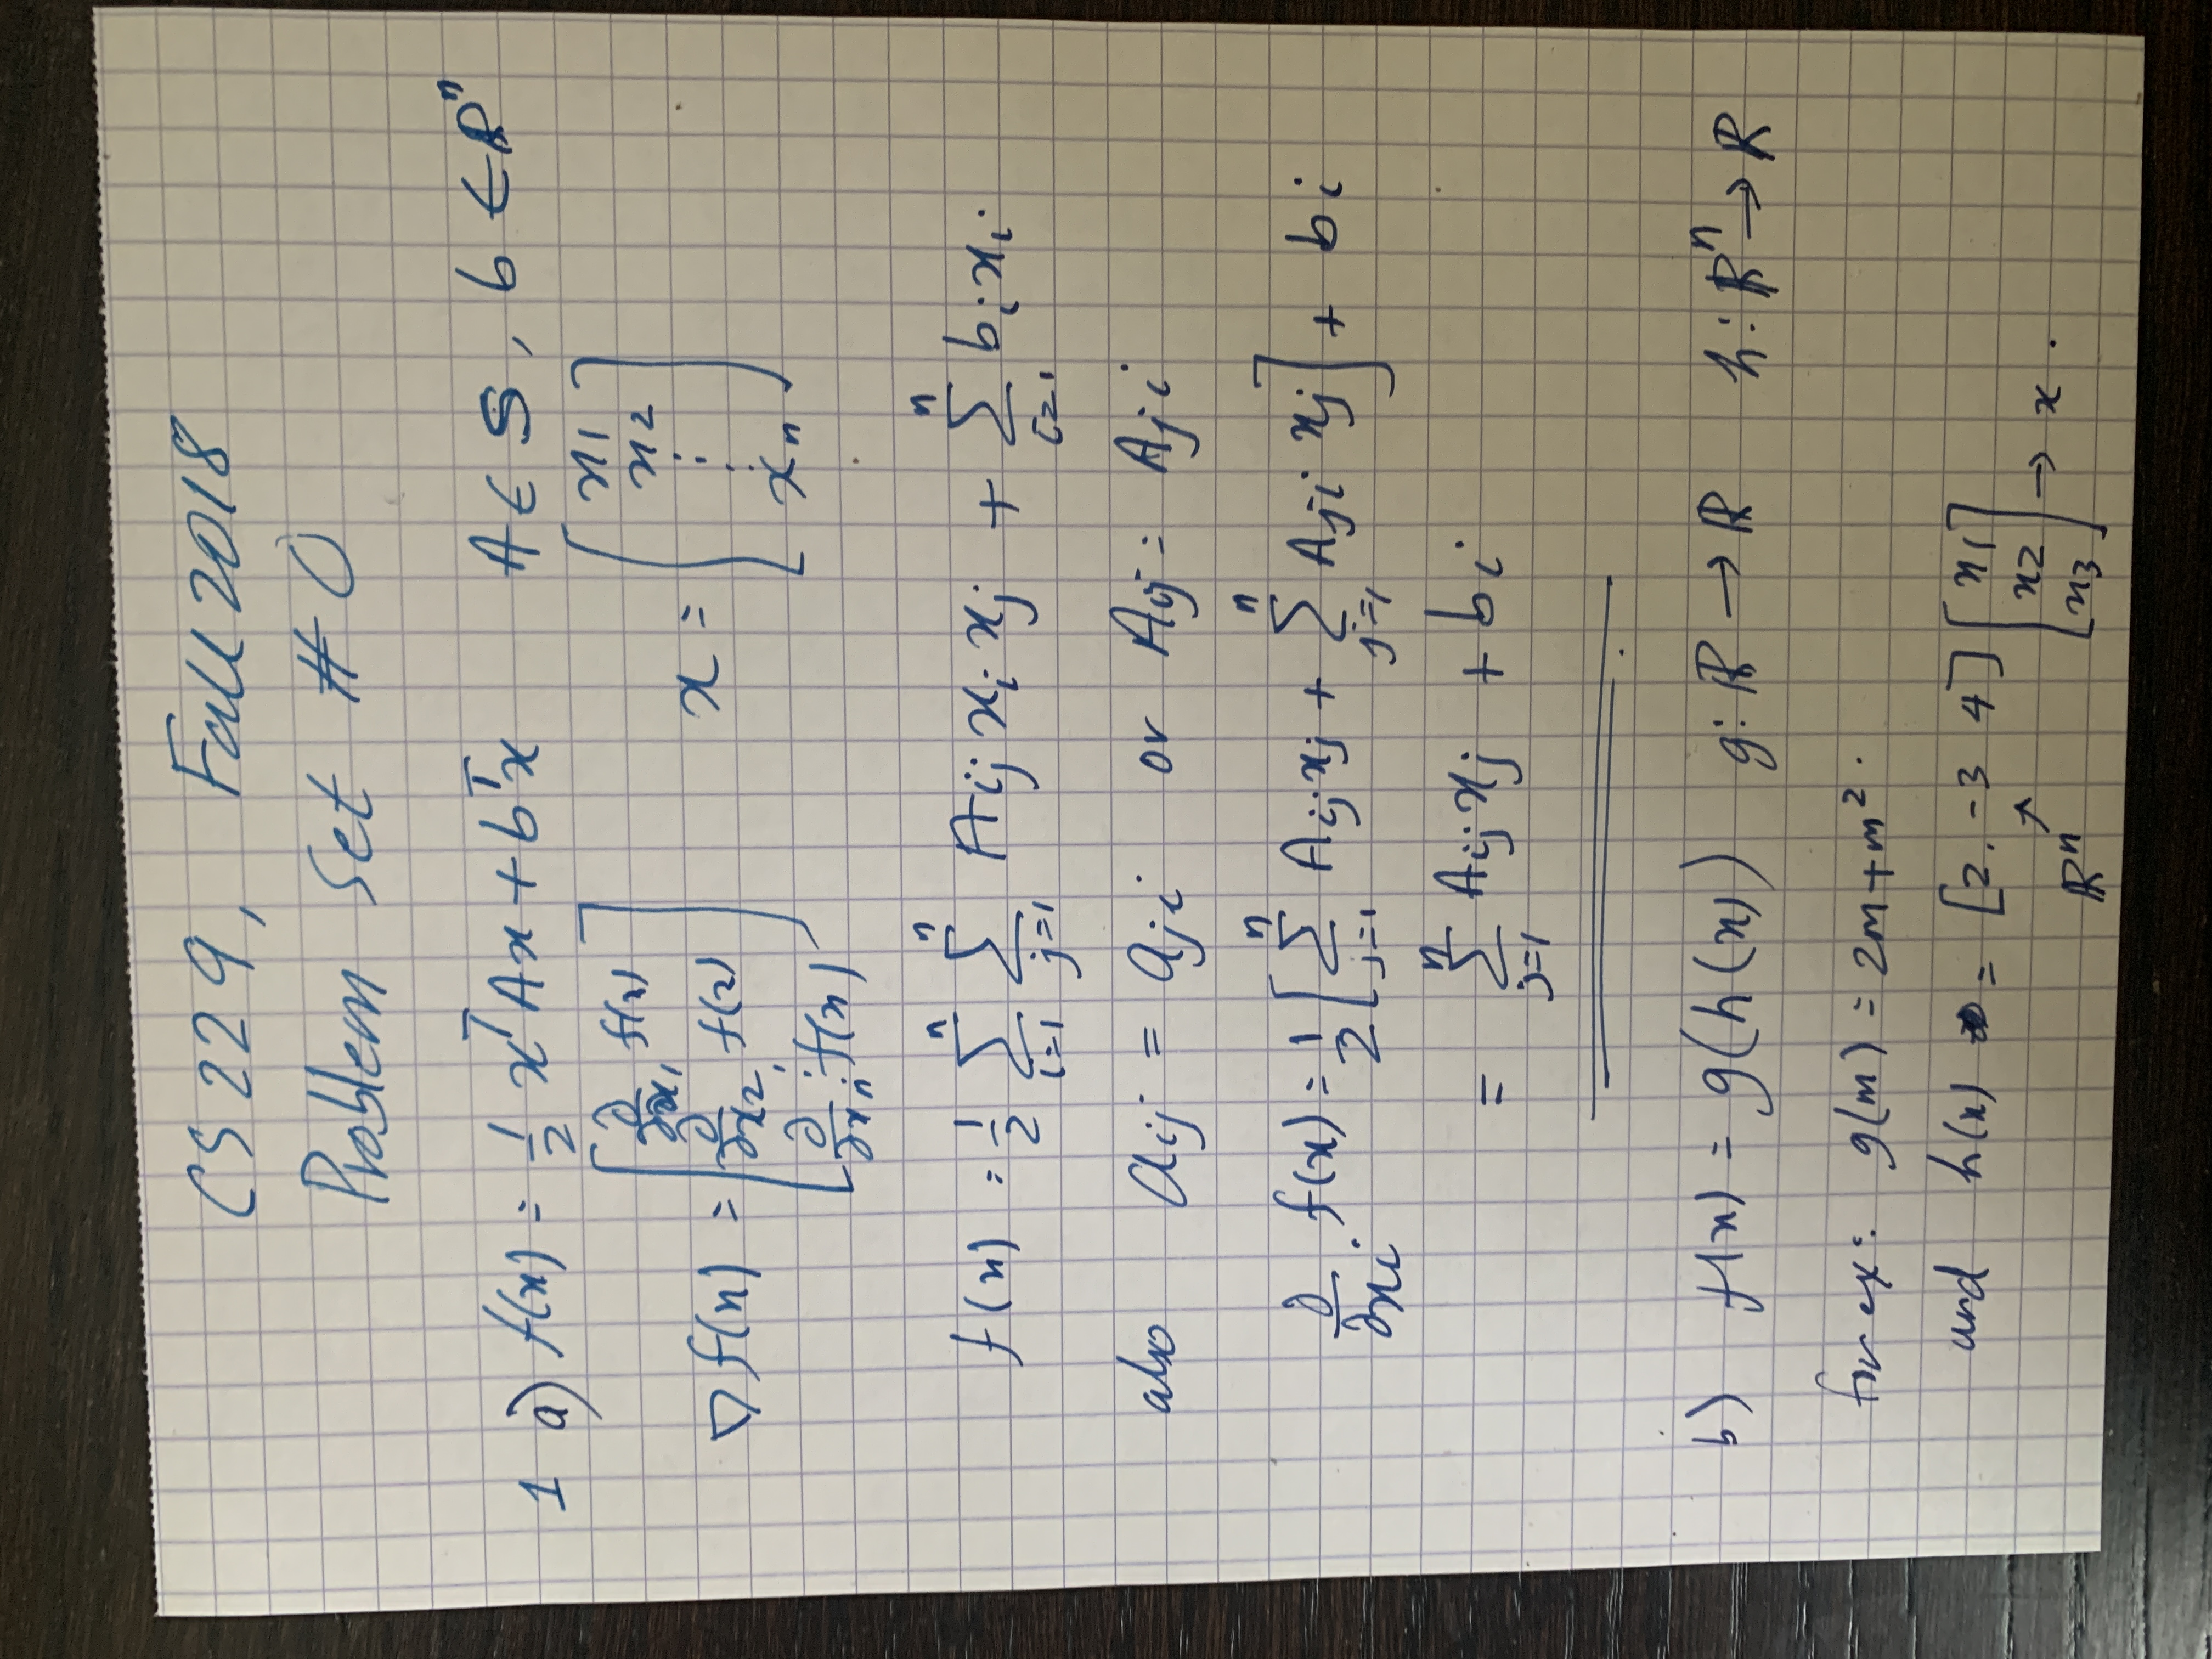 CS 229, Fall 2018
Problem Set # 0
1 a) f(x) = 1/2 xᵀAx + bᵀx A ∈ S, b ∈ ℝⁿ
∇f(x) = [∂/∂x₁ f(x) ∂/∂x₂ f(2) ⋮ ∂/∂xₙ f(x)] x = [x₁ x₂ ⋮ xₙ]
f(x) = 1/2 ∑ⁿᵢ₌₁ ∑ⁿⱼ₌₁ Aᵢⱼ xᵢ xⱼ + ∑ⁿᵢ₌₁ bᵢxᵢ
also aᵢⱼ = aⱼᵢ or Aᵢⱼ = Aⱼᵢ
∂/∂xᵢ f(x) = 1/2 [∑ⁿⱼ₌₁ Aᵢⱼxⱼ + ∑ⁿⱼ₌₁ Aⱼᵢ xⱼ] + bᵢ
= ∑ⁿⱼ₌₁ Aᵢⱼxⱼ + bᵢ
b) f(x) = g(h(x)) g: ℝ → ℝ h: ℝⁿ → ℝ
for ex: g(m) = 2m + m².
and h(x) = [2. -3 4] [x₁ x₂ x₃] → x.
ℝⁿ ↗